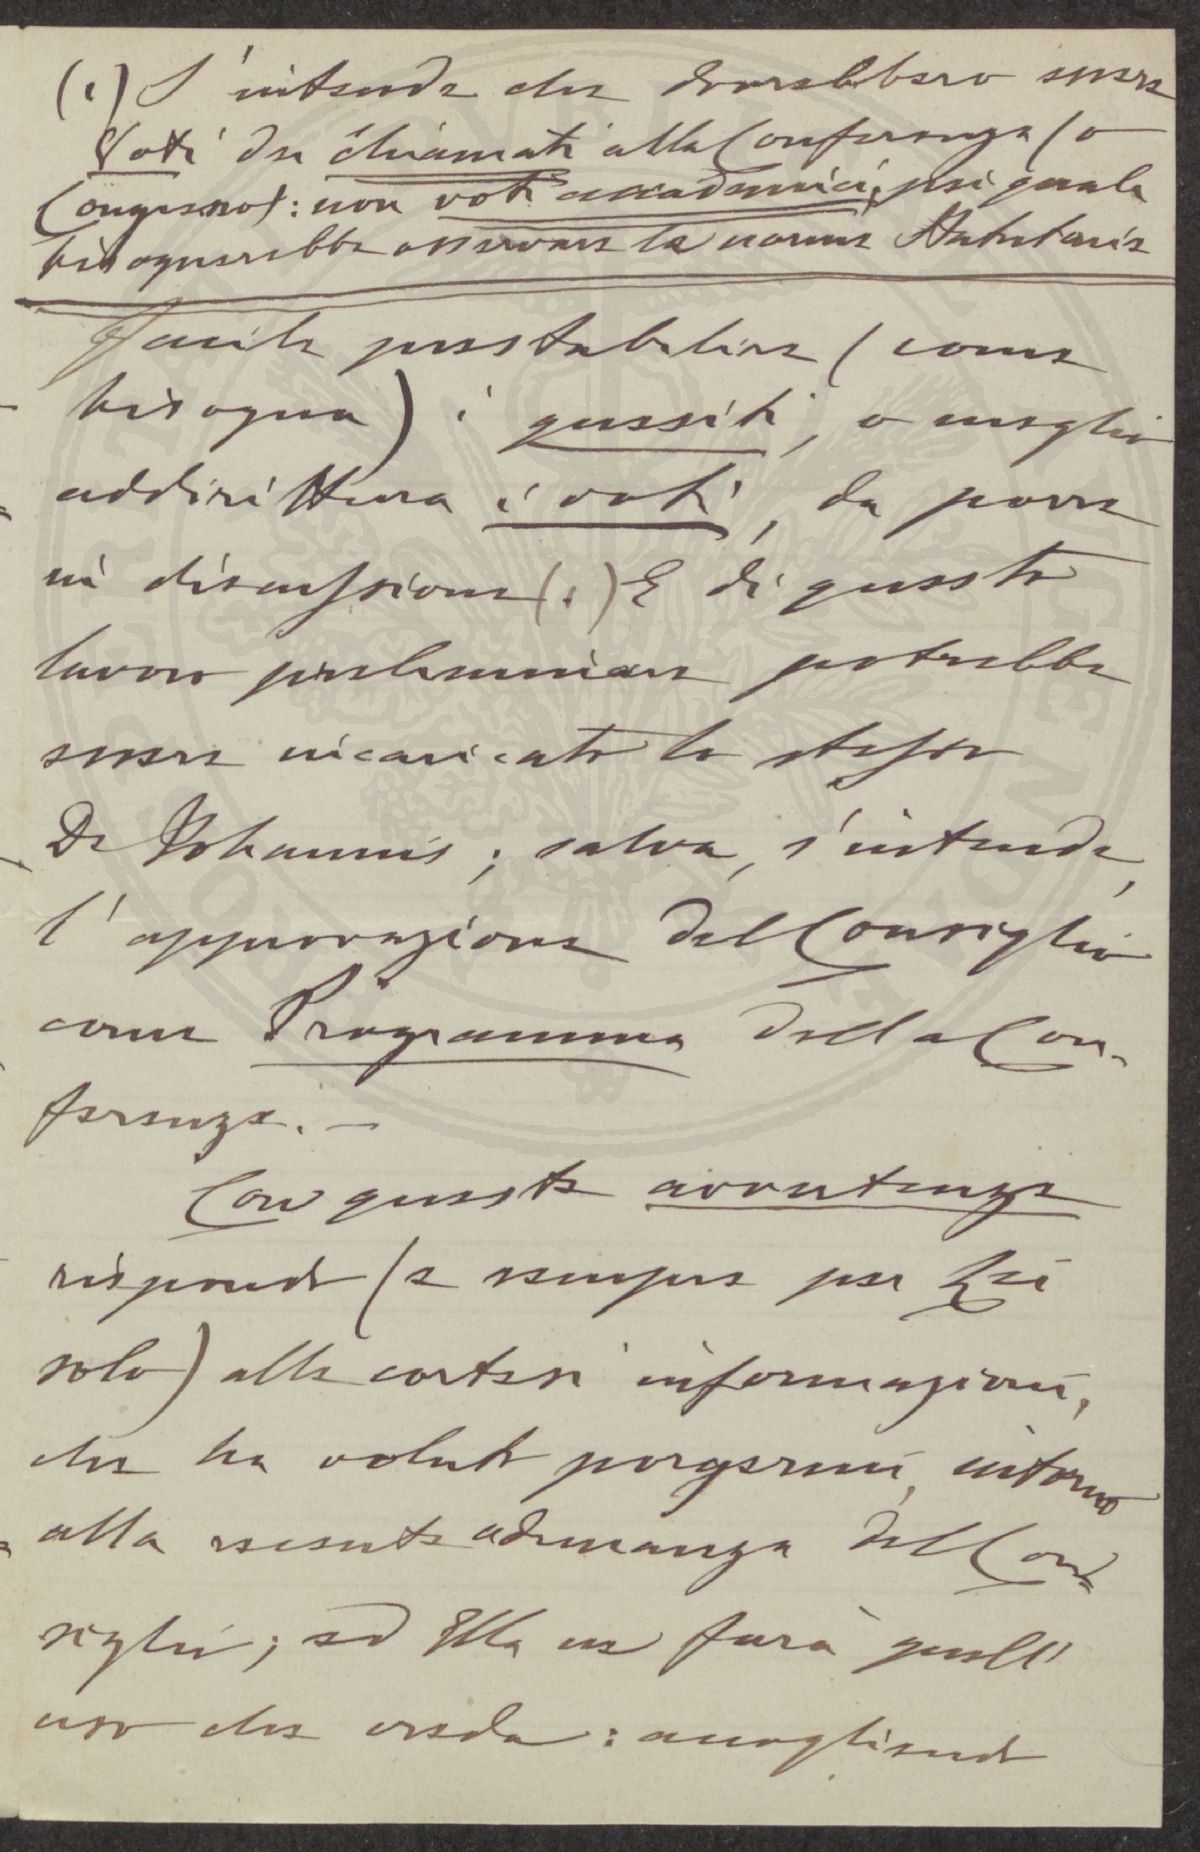 (1) S'intende che dovrebbero essere
Voti dei chiamati alla Conferenza (o
Congresso): non voti accademici, pei quali
bisognerebbe osservare le norme Statutarie
Facile prestabilire (come
bisogna) i quesiti, o meglio
addirittura i voti, da porre
in discussione (1) E di questo
lavoro preliminare potrebbe
essere incaricato lo stesso
De Johannis; salva, s'intende,
l'approvazione del Consiglio
come Programma della Con-
ferenza. —
Con queste avvertenze
rispondo (e sempre per Lei
solo) alle cortesi informazioni,
che ha voluto porgermi, intorno
alla recente adunanza del Con-
siglio; ed Ella ne farà quell'
uso che creda: accogliendo